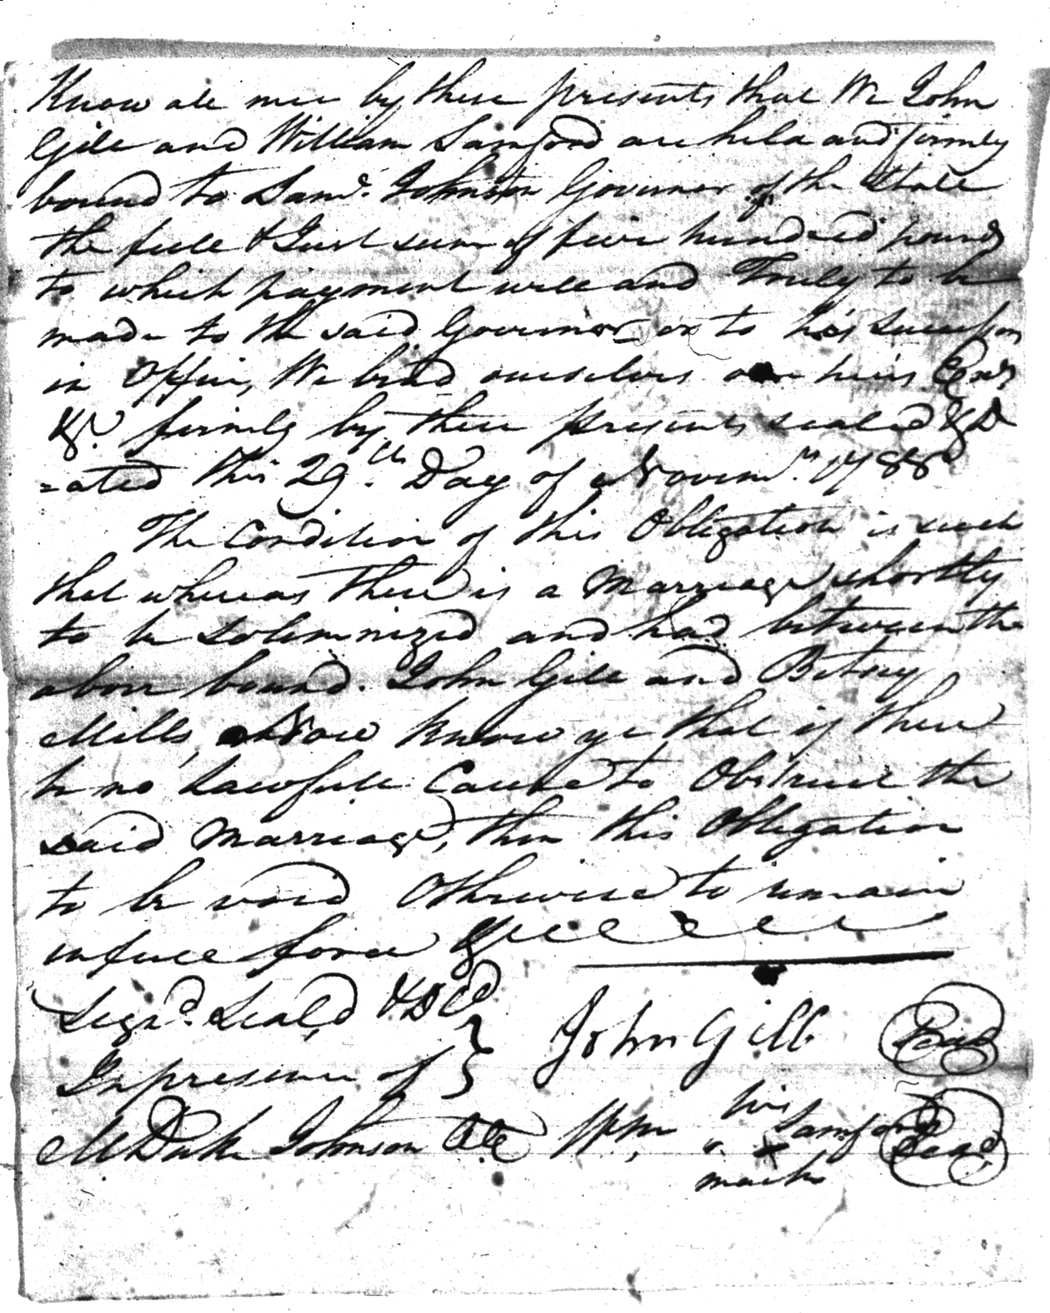 Know all men by these presents that We John
Gill and William Samford are held and firmly
bound to Sam.l Johnston Governor of the State
the full & Just sum of five hundred pounds
to which payment well and Truly to be
made to the said Governor or to his Successors
in Office, We bind ourselves our heirs Exrs
&c. firmly by these presents sealed & D
=ated This 29.th Day of Novem.r 1788
The Condition of this Obligation is such
that whereas There is a Marriage shortly
to be solemnized and had between the
above bound. John Gill and Betsey
Mills, Now know ye that if there
be no Lawfull Cause to Obstruct the
said Marriage, then this Obligation
to be void Otherwise to remain
in full force &c
Sign.d Seal,d & D.d
In presence of
John Gill Seal
M Duke Johnson C.C Wm, his x mark Samford Seal